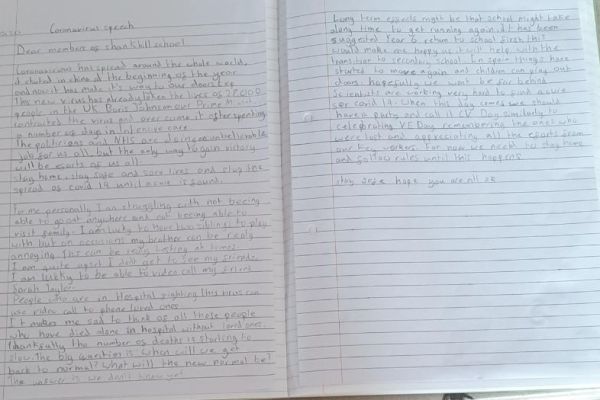 Coronavirus speech
Dear members of shankhill school
Coronavirus has spread around the whole world,
it started in china at the beginning of the year
and now it has made it's way to our doorstep
This new virus has already taken the lives of
people in the UK Boris Johnson our Prime
contracted the virus and over came it after spending
a number of days in Intensive care
The politicians and NHS are doing an unbelievable
job for us all, but the only way to gain victory
will be efforts of us all
stay home, stay safe and save lives and stop the
spread of covid 19 until a cure is found.
For me personally I am struggling with not beeing
able to go out anywhere and not beeing able to
visit family. I am lucky to have two siblings to play
with but on occasions my brother can be really
annoying This can be very testing at times
I am quite upset I don't get to see my friends
I am lucky to be able to video call my friend
Sarah Taylor.
People who are in Hospital fighting this virus can
use video call to phone loved ones
It makes me sad to think of all these people
who have died alone in hospital without loved ones.
Thankfully the number of deaths is starting to
slow. The big question is when will we get
back to normal? What will the new normal be?
The answer is we don't know yet
Long term effects might be that school might take
along time to get running again. it has been
suggested Year 6 return to school first this
would make me happy as it will help with the
transition to secondary school. In spain things have
started to move again and children can play out
doors. hopefully we wont be far behind
Scientists are working very hard to find a cure
for covid 19. When this day comes we should
have a party and call it CV Day similarly to
celebrating VE Day remembering the ones who
were lost and appreciating all the efforts from
our key workers. For now we need to stay home
and follow rules until this happens
stay safe hope you are all ok